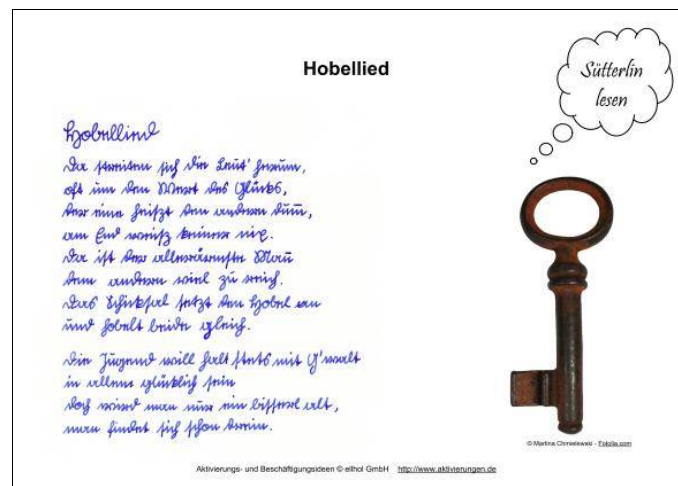 Hobellied
Sütterlin
lesen
Hobellied
Da streiten sich die Leut' herum,
oft um den Wert des Glücks,
der eine heißt den andern dum̄,
am End weiß keiner nix.
Da ist der allerärmste Man̄
dem andern viel zu reich.
Das Schicksal setzt den Hobel an
und hobelt beide gleich.
Die Jugend will halt stets mit G'walt
in allem glücklich sein
doch wird man nur ein bisserl alt,
man findet sich schon drein.
© Martina Chmielewski - Fotolia.com
Aktivierungs- und Beschäftigungsideen © ellhol GmbH http://www.aktivierungen.de